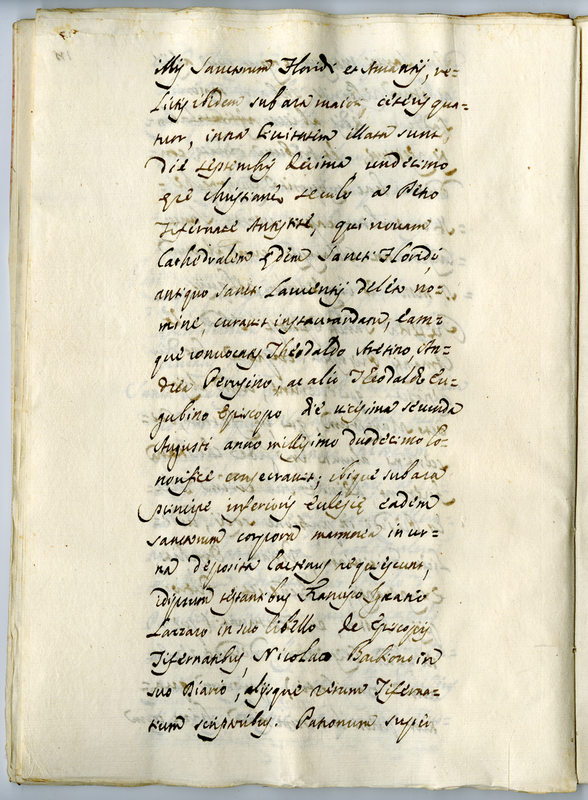 illis Sanctorum Floridi et Amantij, re=
lictis ibidem sub ara maiori, ceteris qua=
tuor, intra Civitatem illata sunt
Die septembris decima undecimo
ere christiane seculo a Petro
Tifernate Antistite, qui novam
Cathedralem Edem Sancti Floridi,
antiquo Sancti Laurentij deleto no=
mine, curavit instaurandam, eam=
que convocatis Theodaldo Aretino, An=
drea Perusino, ac alio Teodaldo Eu=
gubino Episcopo die vicesima secunda
Augusti anno millesimo duodecimo so=
norifice consecravit; ibique sub ara
principe inferioris Eclesię eadem
sanctorum corpora marmorea in ur=
na deposita hactenus requiescunt,
idipsum testantibus
Lazzaro in suo libello de Episcopis
Tifernatibus, Nicolao in
suo Diario, alijsque rerum Tiferna=
tium scriptoribus. Patronum super